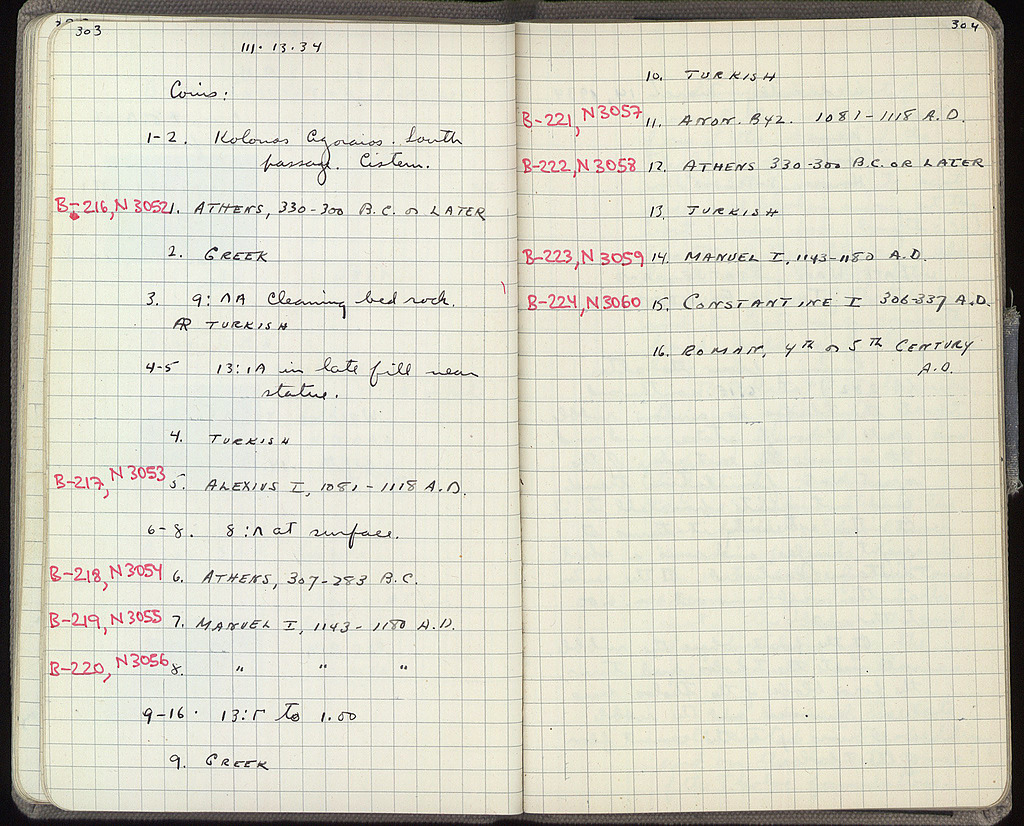 303
III·13·34
Coins:
1-2. Kolonos Agoraios. South
passage. Cistern.
B-216, N 3052 1. ATHENS, 330-300 B.C. or LATER
2. GREEK
3. 9:ΛΑ Cleaning bed rock.
AR TURKISH
4-5 13:1A in late fill near
statue.
4. TURKISH
B-217, N 3053 5. ALEXIUS I, 1081-1118 A.D.
6-8. 8:Λ at surface.
B-218, N 3054 6. ATHENS, 307-283 B.C.
B-219, N 3055 7. MANUEL I, 1143-1180 A.D.
B-220, N 3056 8. " " "
9-16. 13:Γ to 1.00
9. GREEK
304
10. TURKISH
B-221, N 3057 11. ANON. BYZ. 1081-1118 A.D.
B-222, N 3058 12. ATHENS 330-300 B.C. OR LATER
13. TURKISH
B-223, N 3059 14. MANUEL I, 1143-1180 A.D.
B-224, N 3060 15. CONSTANTINE I 306-337 A.D.
16. ROMAN, 4TH or 5TH CENTURY
A.D.